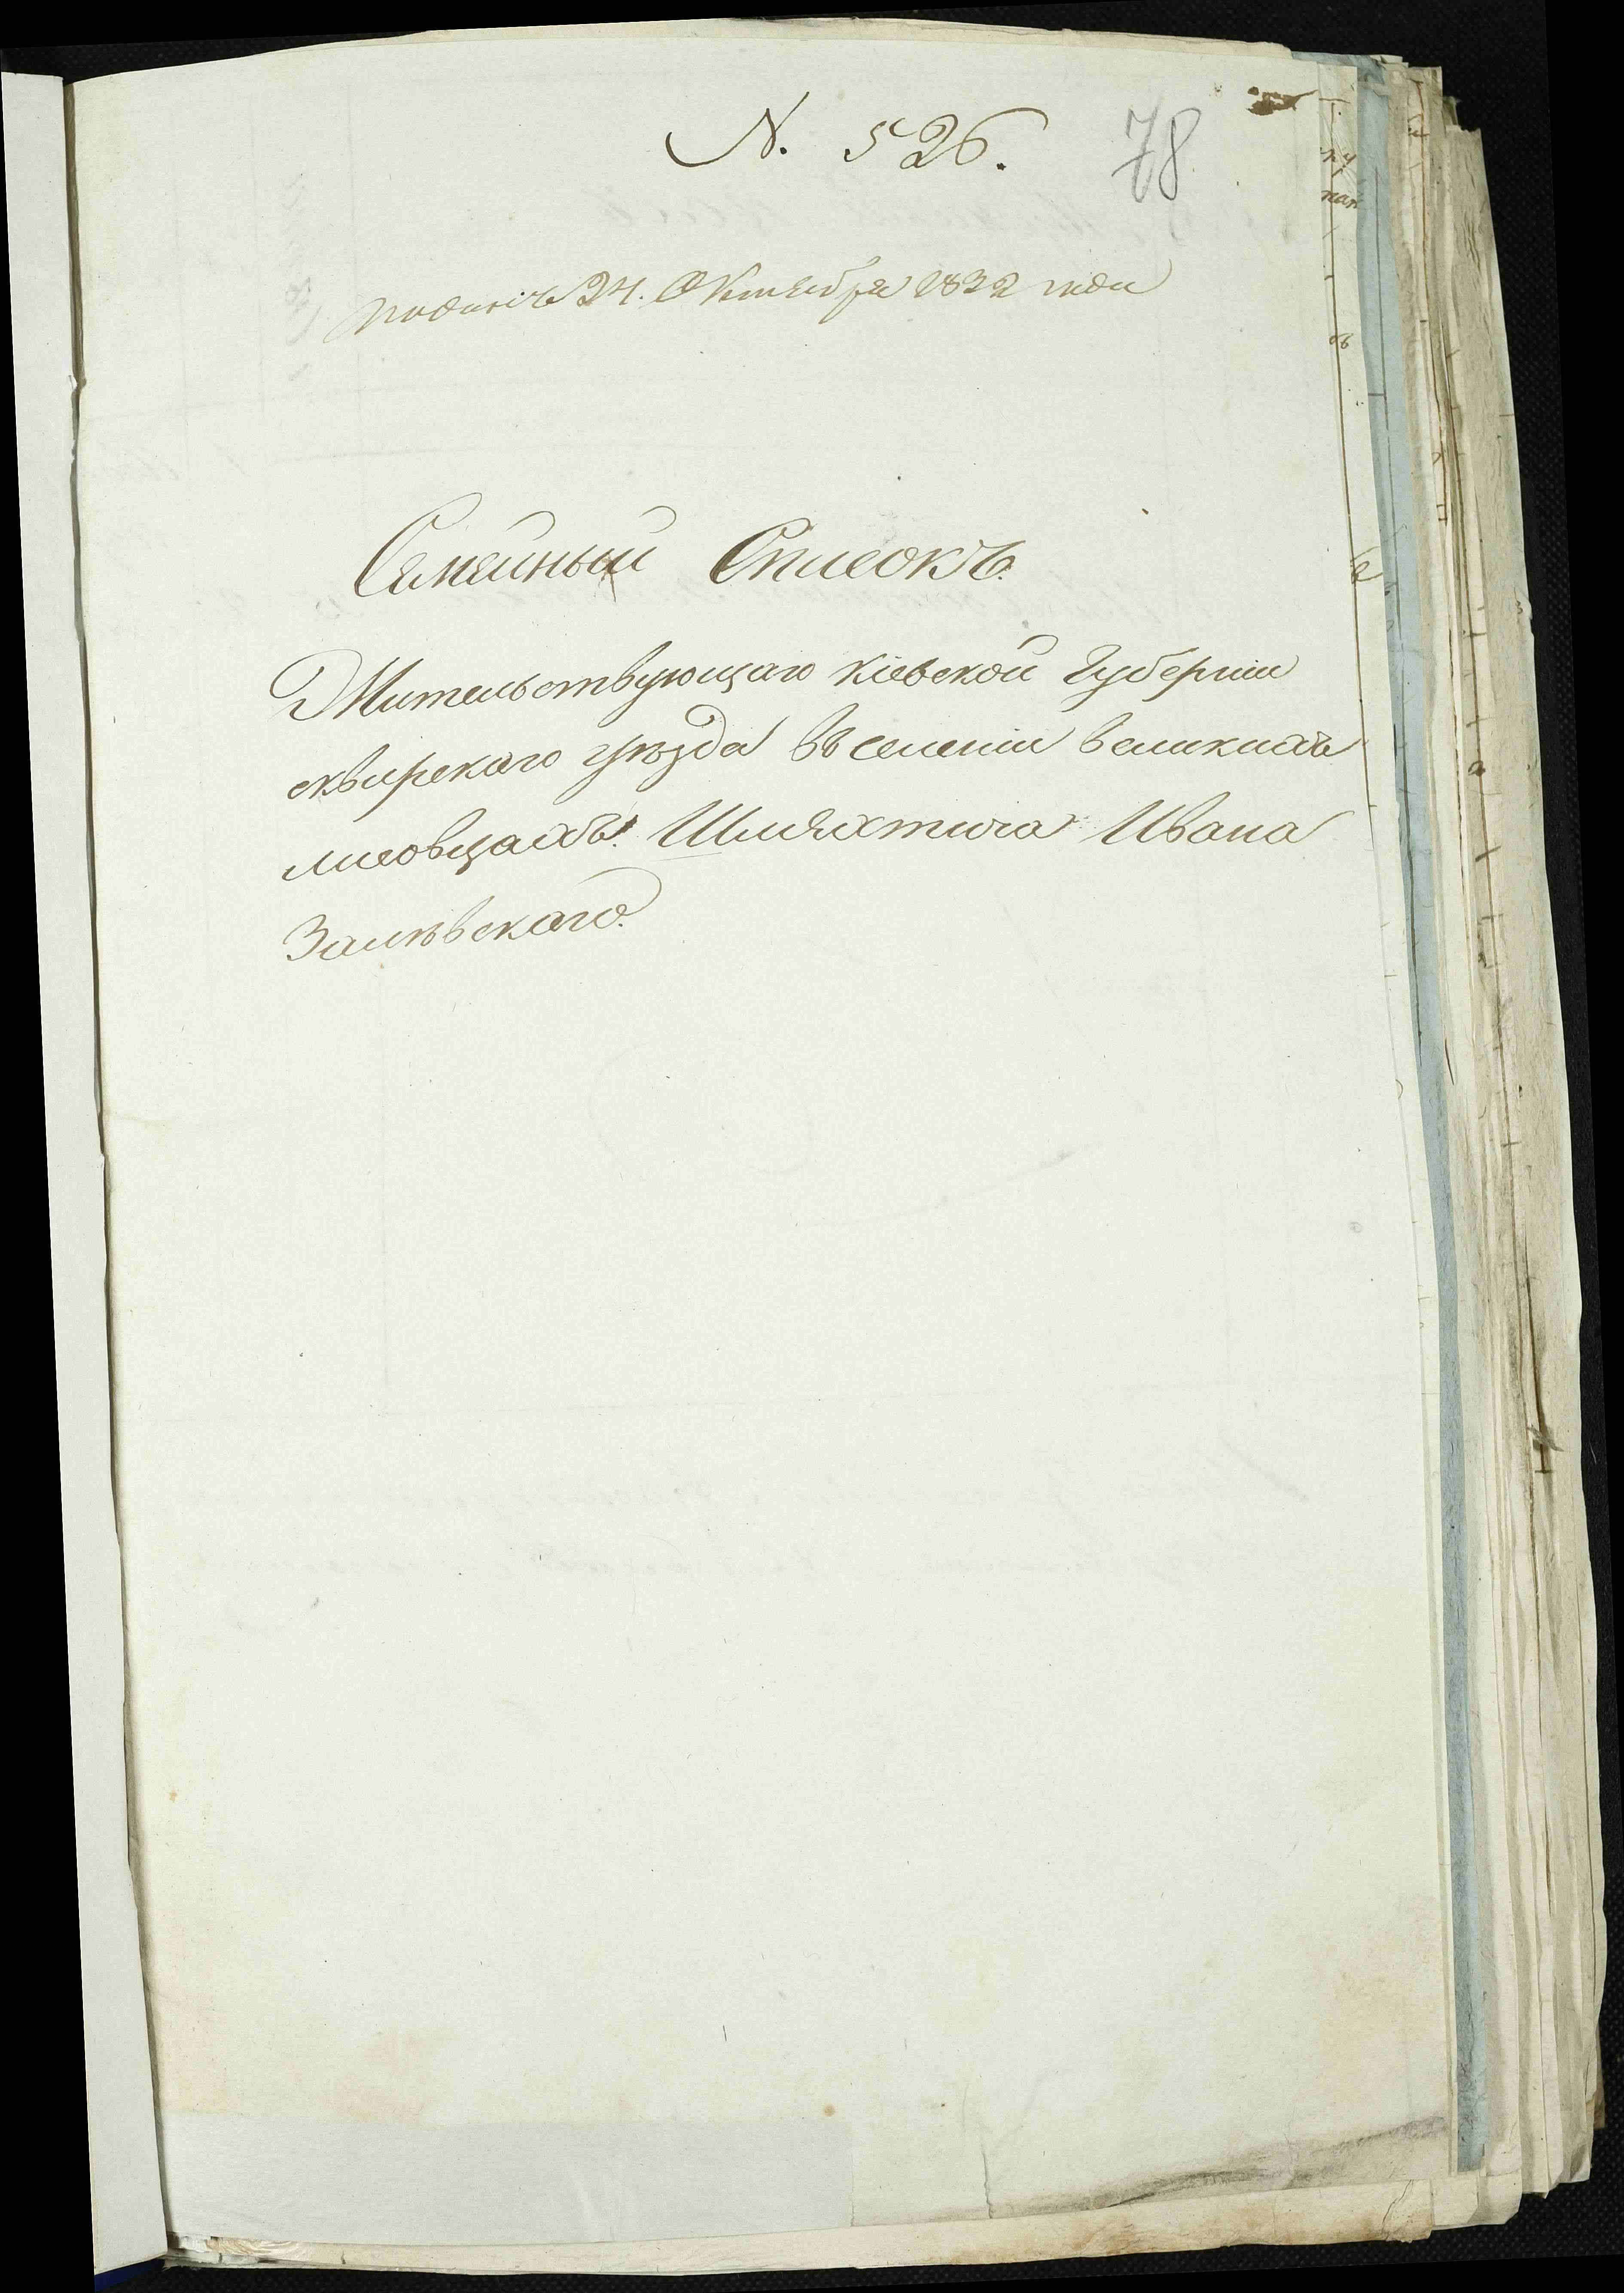 N. 526. 78
подалъ 24. Октября 1832 года
Семейный Списокъ.
Жительствующаго Кіевской Губерніи
сквирскаго уѣзда въ селеніи великихъ
лисовцахъ. Шляхтича Ивана
Залѣвскаго.